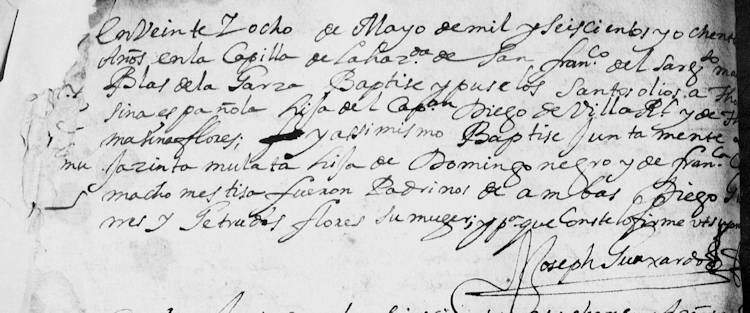 En Veinte Y ocho de Mayo de mil y seiscientos y ochen
Años en la Capilla de la haz.da de San fran.co del Sarg.to ma
Blas de la Garza Baptise y puse los Santos olios a Tho
sina española hija del Cap.an Diego de Villa Rl y de
marina flores; y assimismo Baptise Junta mente a
Jazinta mulata hija de Domingo negro y de fran.ca
macho mestisa fueron Padrinos de ambas Diego Gu
rres y Getrudes flores su muger; y p.r que Conste lo firme vt supra
Joseph Guaxardo